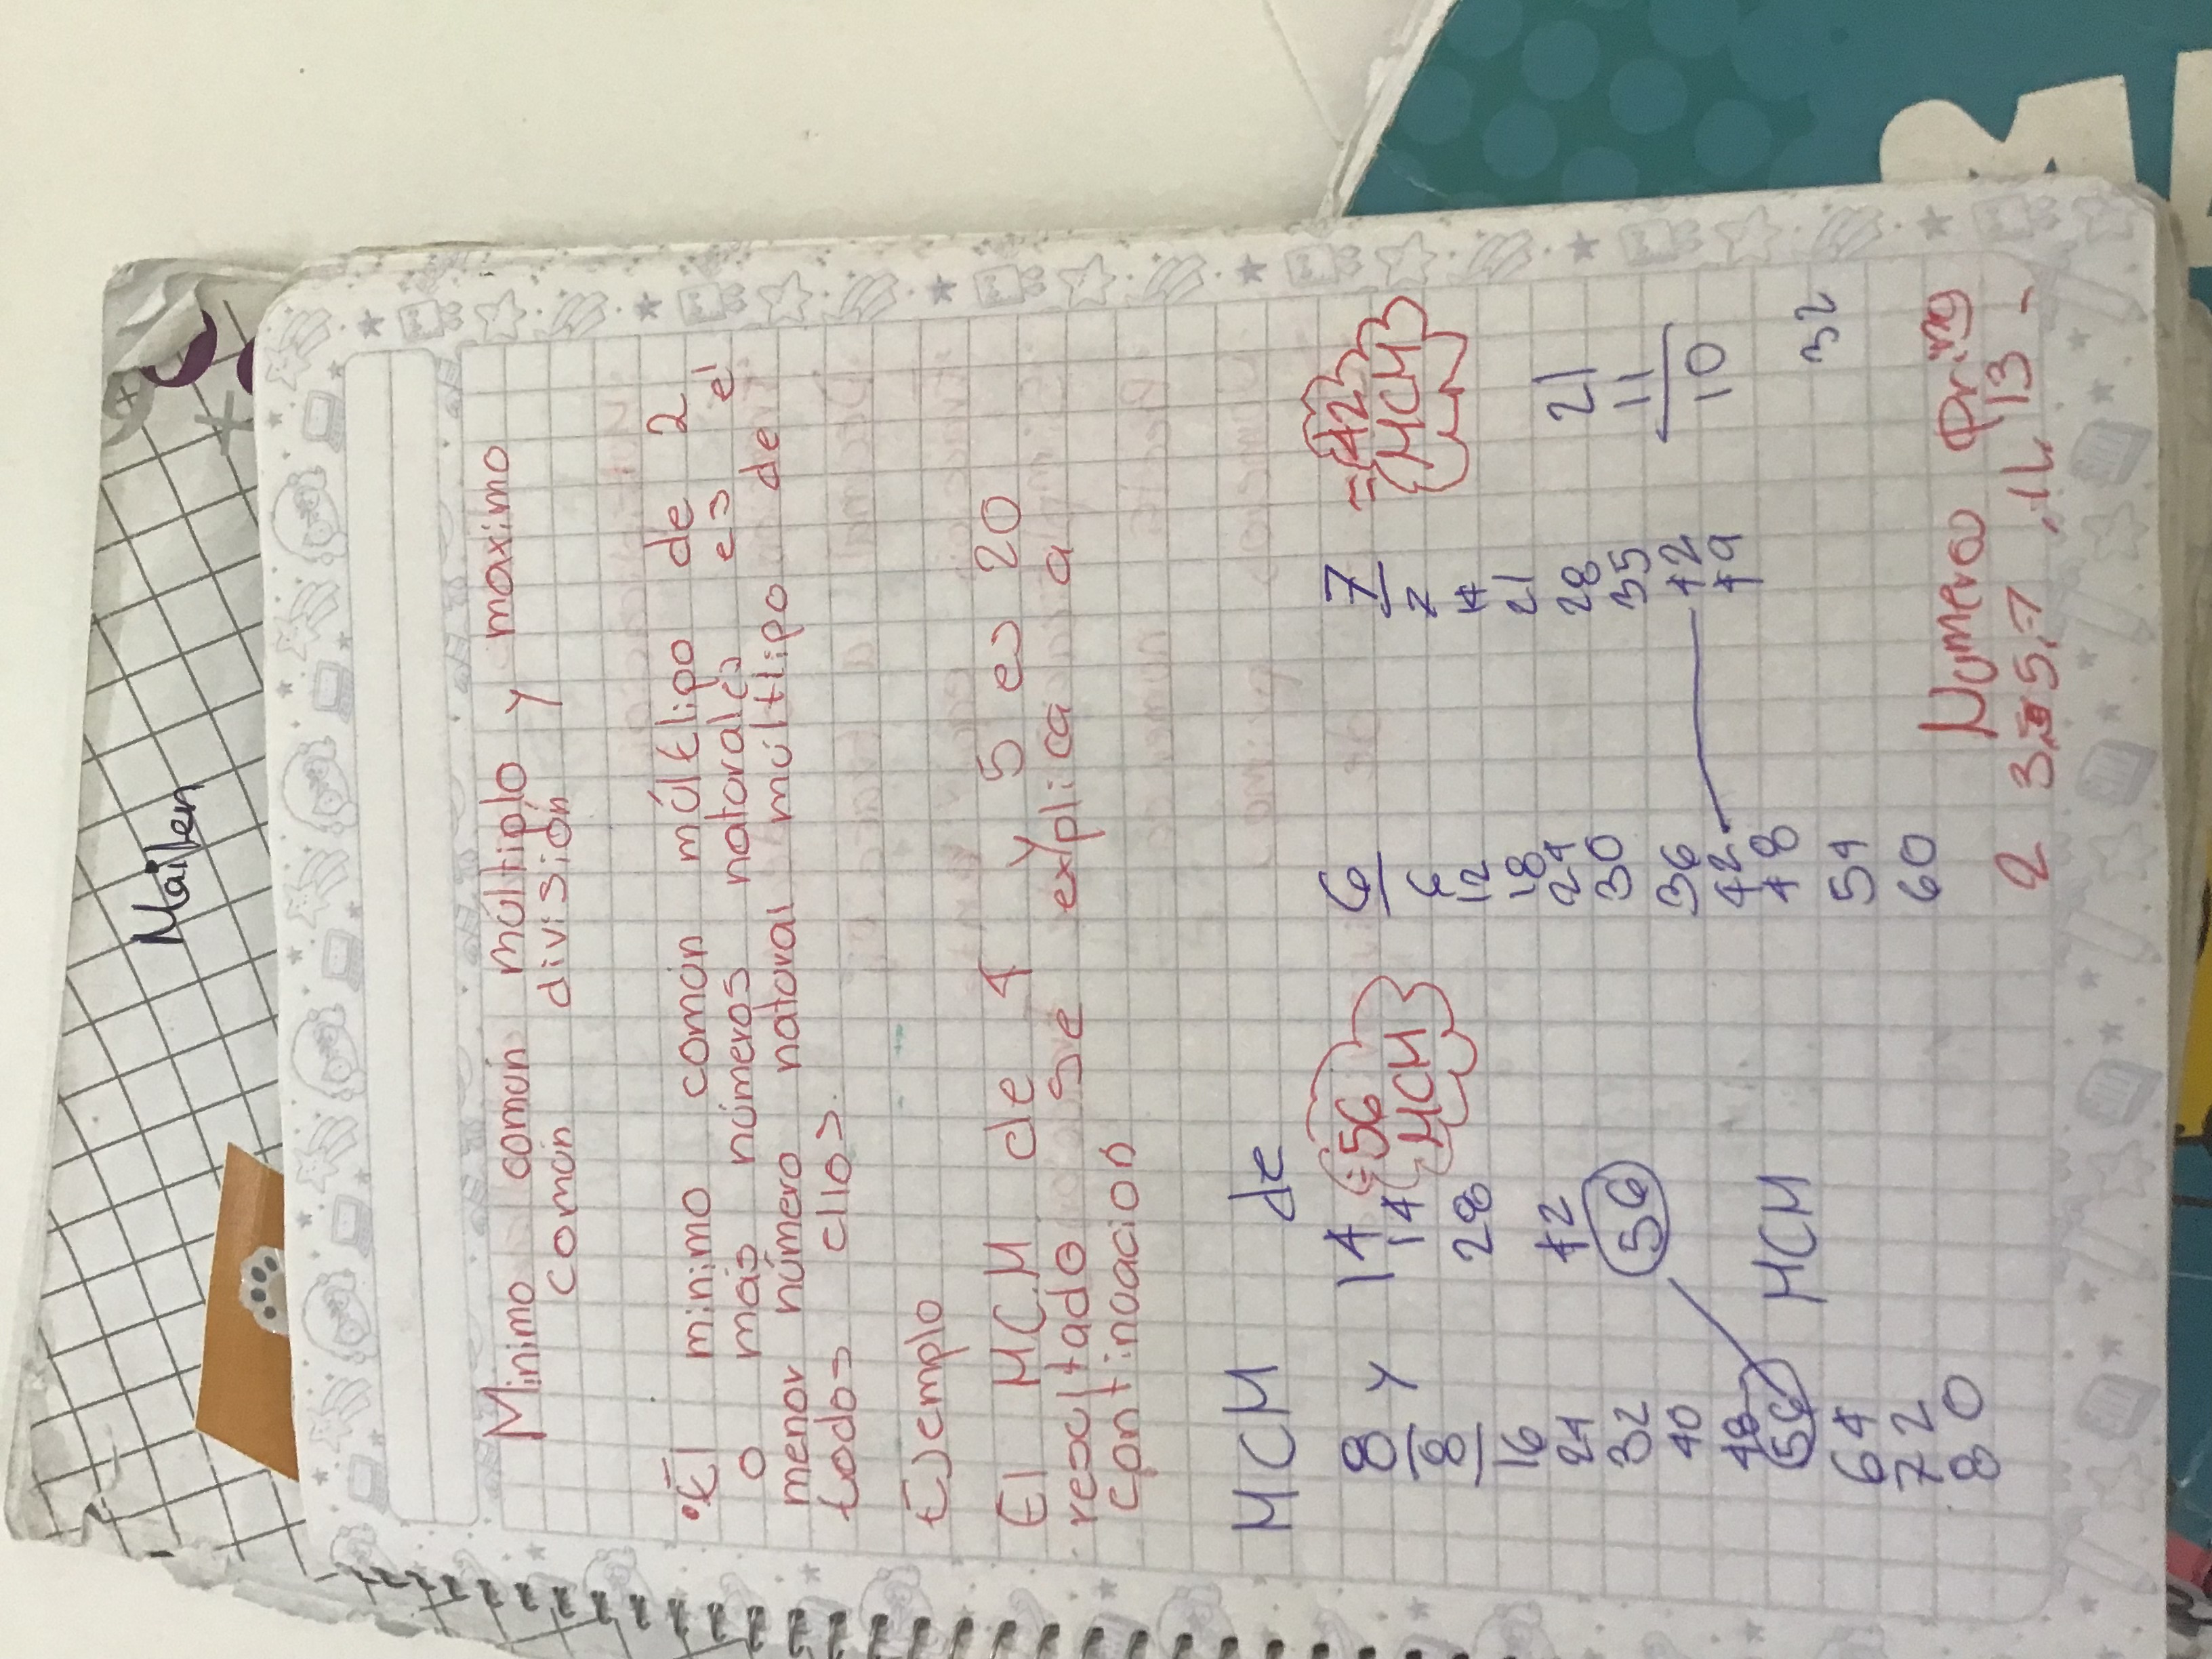 Mailen
Minimo común múltiplo y maximo
común división
•El minimo común múltlipo de 2
o más números naturales es el
menor número natural múltlipo de
todos ellos
Ejemplo
El MCM de 4 y 5 es 20
resultado se explica a
continuación
MCM de
8 y 14 =56 MCM
8 14
16 28
24 42
32 56
40
48
56 MCM
64
72
80
6 7 =42 MCM
6 7
12 14
18 21
24 28
30 35
36 42
42 49
48
54
60
21
11
10
32
Numeros
2 3 5,7 ,11, 13 -